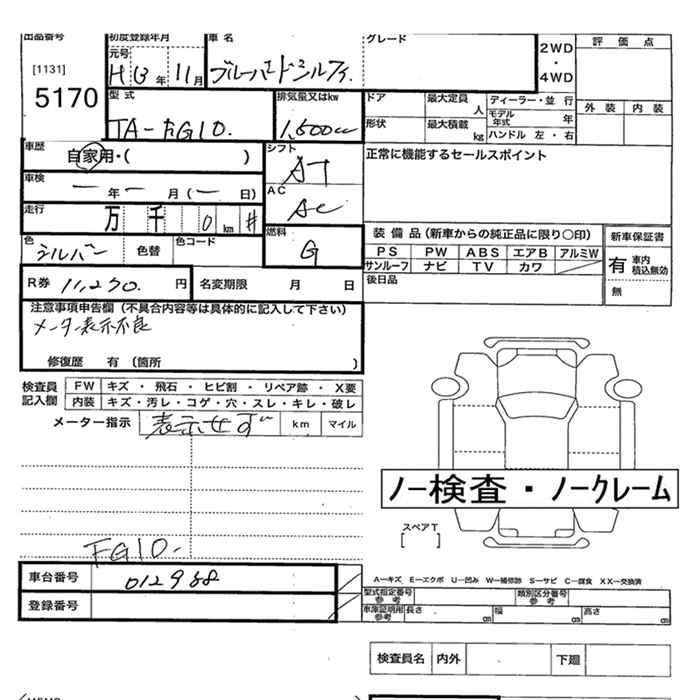 出品番号
初度登録年月
車名
グレード
元号
[1131]
5170
H 13 年 11 月
ブルーバードシルフィ
2WD
・
4WD
評価点
外装 内装
型式
TA-FG10.
排気量又はkw
1,500cc
ドア
最大定員
人
ディーラー・並行
形状
最大積載
kg
モデル年式 年
ハンドル 左・右
車歴
自家用・( )
シフト
AT
正常に機能するセールスポイント
車検
— 年 — 月(— 日)
AC
AC
走行
万 千 0 km #
燃料
G
装備品(新車からの純正品に限り○印)
新車保証書
PS PW ABS エアB アルミW
サンルーフ ナビ TV カワ
有 車内積込無効
無
色
シルバー
色替
色コード
R券 11,270. 円
名変期限 月 日
後日品
注意事項申告欄(不具合内容等は具体的に記入して下さい)
メーター表示不良
修復歴 有(箇所 )
検査員記入欄
FW キズ・飛石・ヒビ割・リペア跡・X要
内装 キズ・汚レ・コゲ・穴・スレ・キレ・破レ
メーター指示 表示せず km マイル
ノー検査・ノークレーム
スペアT
[ ]
FG10-
車台番号 012988
登録番号
A—キズ E—エクボ U—凹み W—補修跡 S—サビ C—腐食 XX—交換済
型式指定番号 参考
類別区分番号 参考
車庫証明用 参考 長さ cm 幅 cm 高さ cm
検査員名 内外 下廻
MEMO